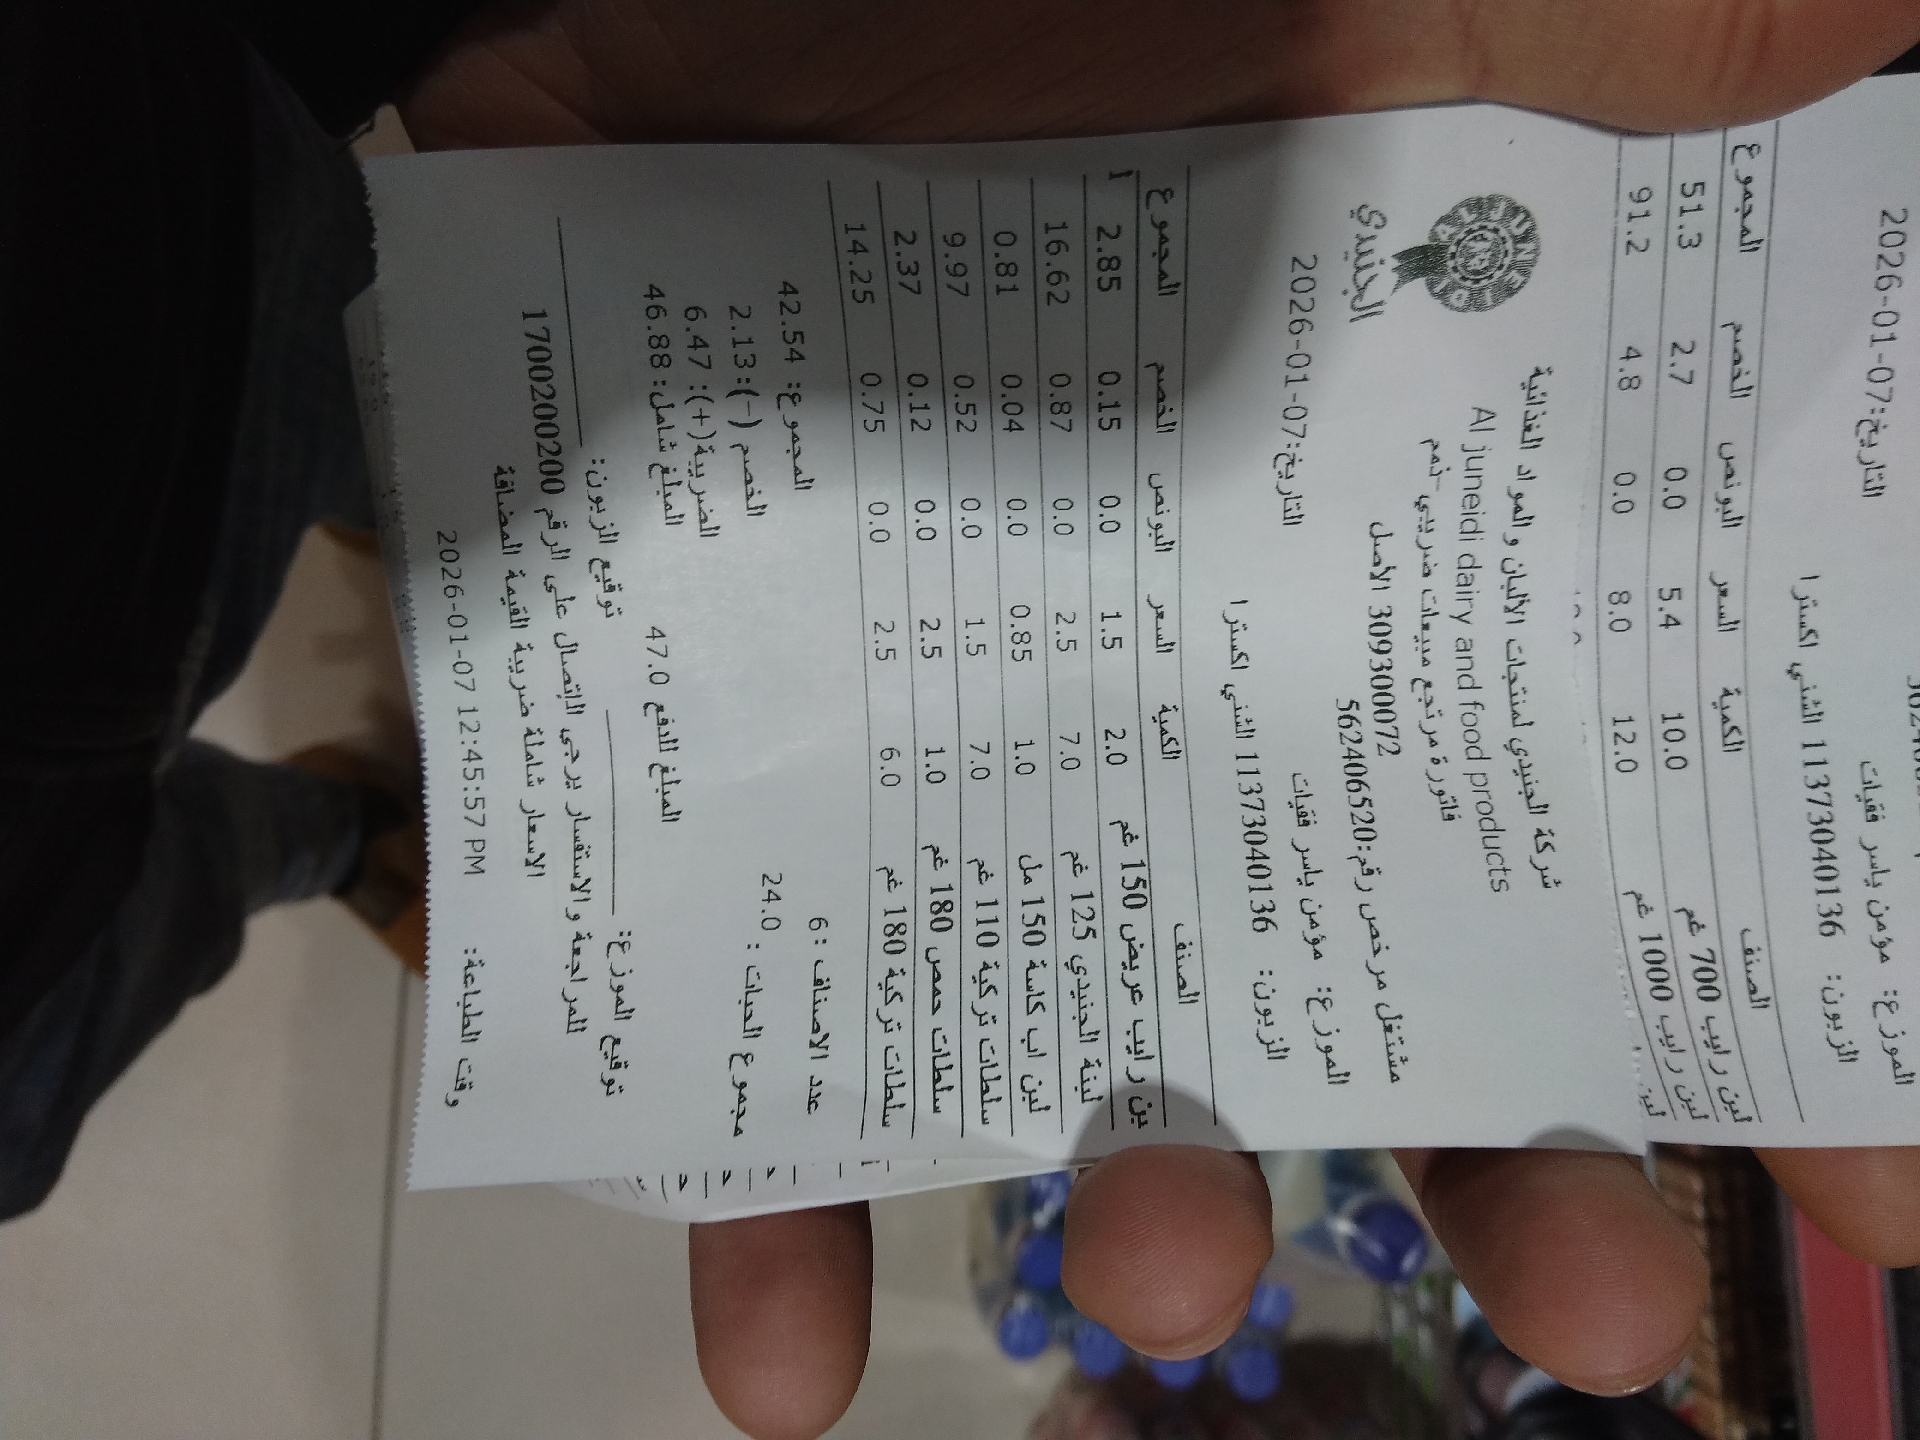 التاريخ:07-01-2026
الموزع: مؤمن ياسر فقيات
الزبون: 11373040136 الشني اكسترا
الصنف الكمية السعر البونص الخصم المجموع
لبن رايب 700 غم 10.0 5.4 0.0 2.7 51.3
لبن رايب 1000 غم 12.0 8.0 0.0 4.8 91.2
الجنيدي
شركة الجنيدي لمنتجات الألبان والمواد الغذائية
Al juneidi dairy and food products
فاتورة مرتجع مبيعات ضريبي-ذمم
309300072 الأصل
مشتغل مرخص رقم:562406520
التاريخ:07-01-2026
الموزع: مؤمن ياسر فقيات
الزبون: 11373040136 الشني اكسترا
الصنف الكمية السعر البونص الخصم المجموع
بن رايب عريض 150 غم 2.0 1.5 0.0 0.15 2.85
لبنة الجنيدي 125 غم 7.0 2.5 0.0 0.87 16.62
لبن اب كاسة 150 مل 1.0 0.85 0.0 0.04 0.81
سلطات تركية 110 غم 7.0 1.5 0.0 0.52 9.97
سلطات حمص 180 غم 1.0 2.5 0.0 0.12 2.37
سلطات تركية 180 غم 6.0 2.5 0.0 0.75 14.25
عدد الاصناف : 6 المجموع: 42.54
مجموع الحبات : 24.0 الخصم (-):2.13
الضريبة(+): 6.47
المبلغ للدفع 47.0 المبلغ شامل: 46.88
توقيع الموزع: ____________ توقيع الزبون: ____________
للمراجعة والاستفسار يرجى الاتصال على الرقم 1700200200
الاسعار شاملة ضريبة القيمة المضافة
وقت الطباعة: 2026-01-07 12:45:57 PM